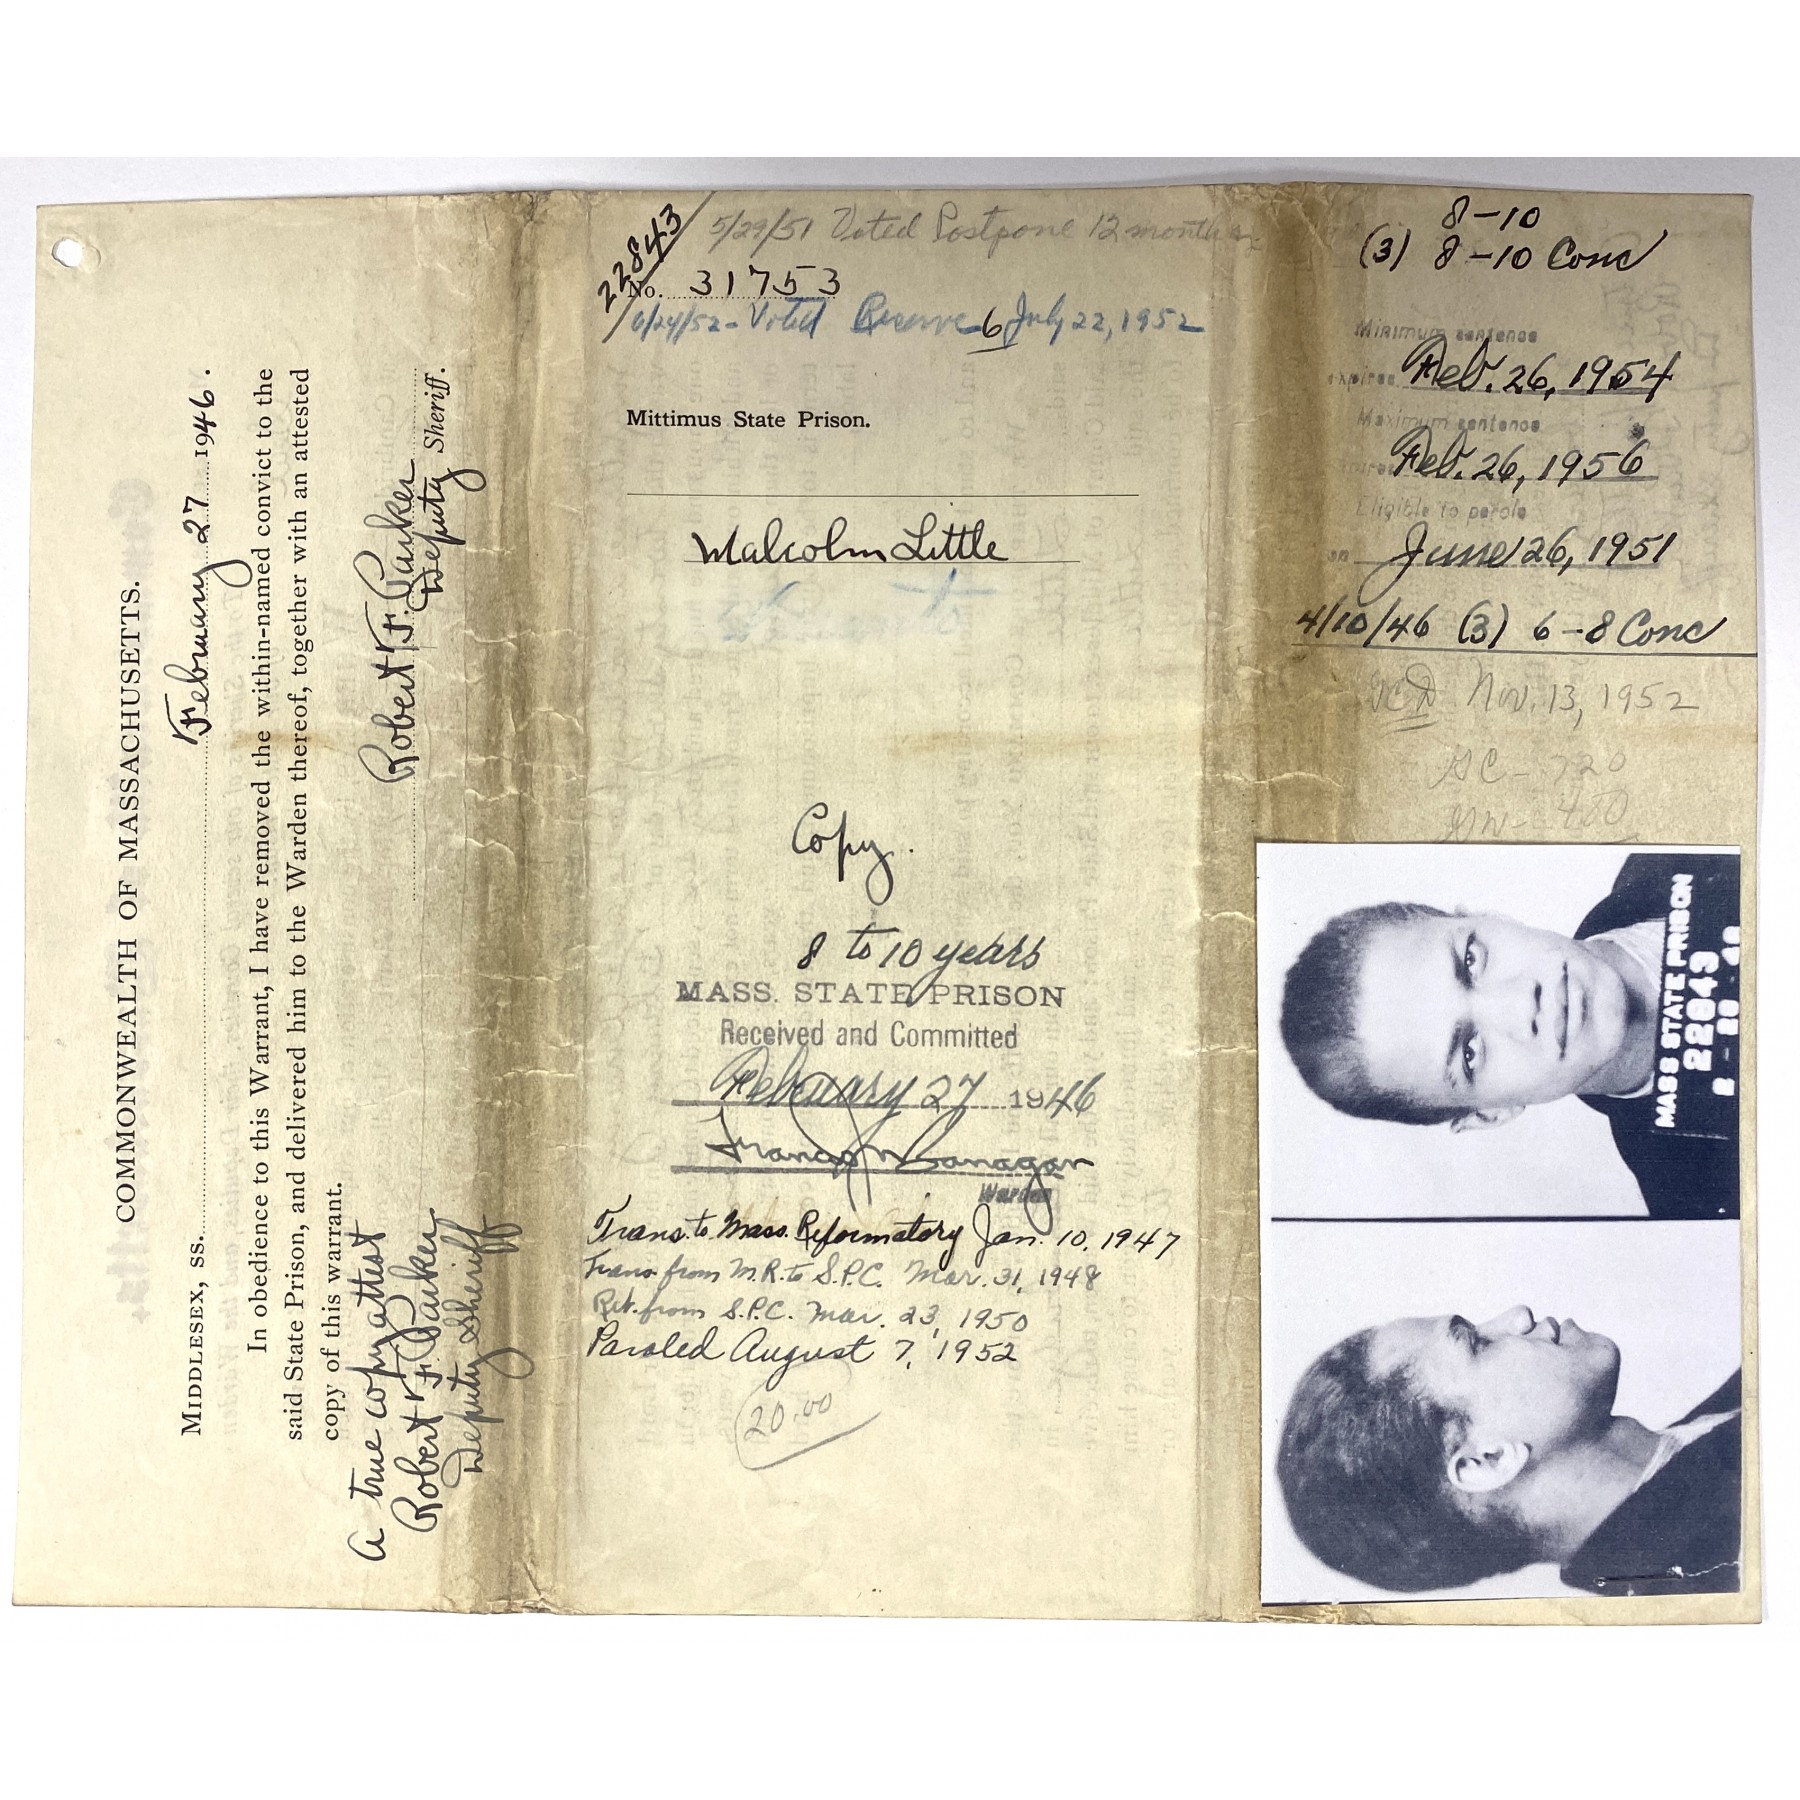 COMMONWEALTH OF MASSACHUSETTS.
MIDDLESEX, ss. February 27 1946.
In obedience to this Warrant, I have removed the within-named convict to the
said State Prison, and delivered him to the Warden thereof, together with an attested
copy of this warrant.
Robert F. Parker
Deputy Sheriff.
A true copy attest
Robert F. Parker
Deputy Sheriff
22843
5/29/51 Voted Postpone 12 months
No. 31753
6/24/52 - Voted Reserve 6 July 22, 1952
Mittimus State Prison.
Malcolm Little
Copy.
8 to 10 years
MASS. STATE PRISON
Received and Committed
February 27 1946
Warden
Trans. to Mass. Reformatory Jan. 10, 1947
Trans. from M.R. to S.P.C. Mar. 31, 1948
Ret. from S.P.C. Mar. 23, 1950
Paroled August 7, 1952
20.00
8-10
(3) 8-10 Conc
Minimum sentence
expires Feb. 26, 1954
Maximum sentence
expires Feb. 26, 1956
Eligible to parole
on June 26, 1951
4/10/46 (3) 6-8 Conc
GCD Nov. 13, 1952
GC - 720
MASS STATE PRISON
22843